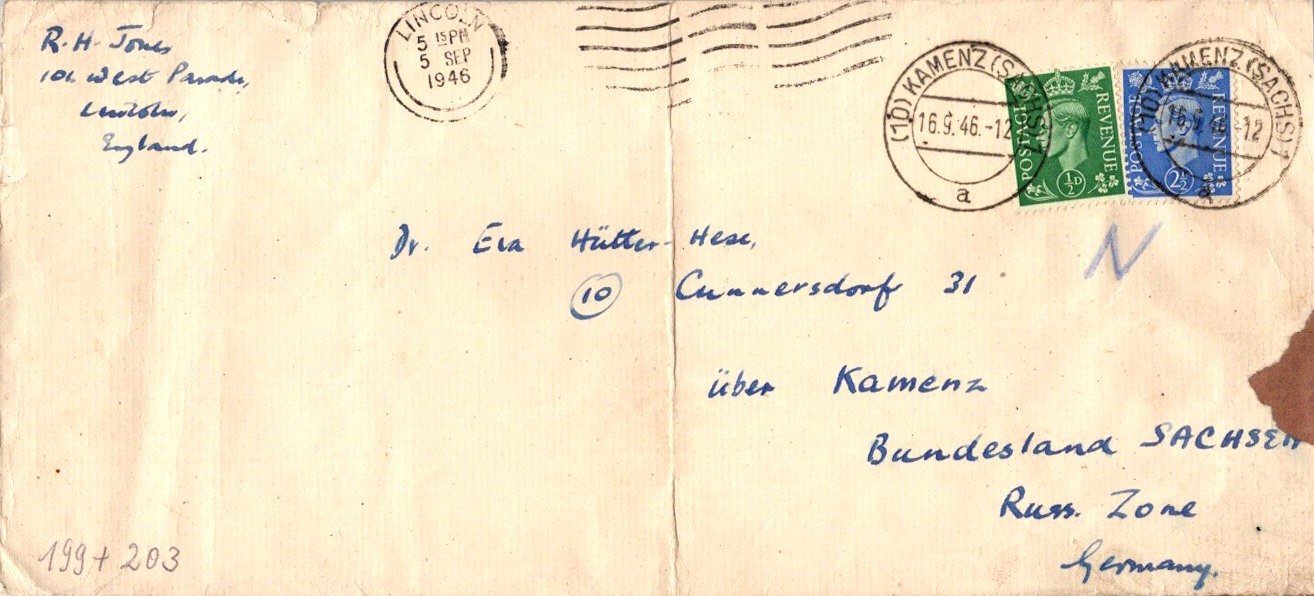 R. H. Jones
101. West Parade,
Lincoln,
England.
LINCOLN
5 15 PM
5 SEP
1946
(10) KAMENZ (SACHS)
16.9.46.-12
a
POSTAGE REVENUE
½D
(10) KAMENZ (SACHS) 1
16.9.46.-12
a
POSTAGE REVENUE
2½D
N
Dr. Eva Hütter-Hese,
10 Cunnersdorf 31
über Kamenz
Bundesland SACHSEN
Russ. Zone
Germany.
199+203